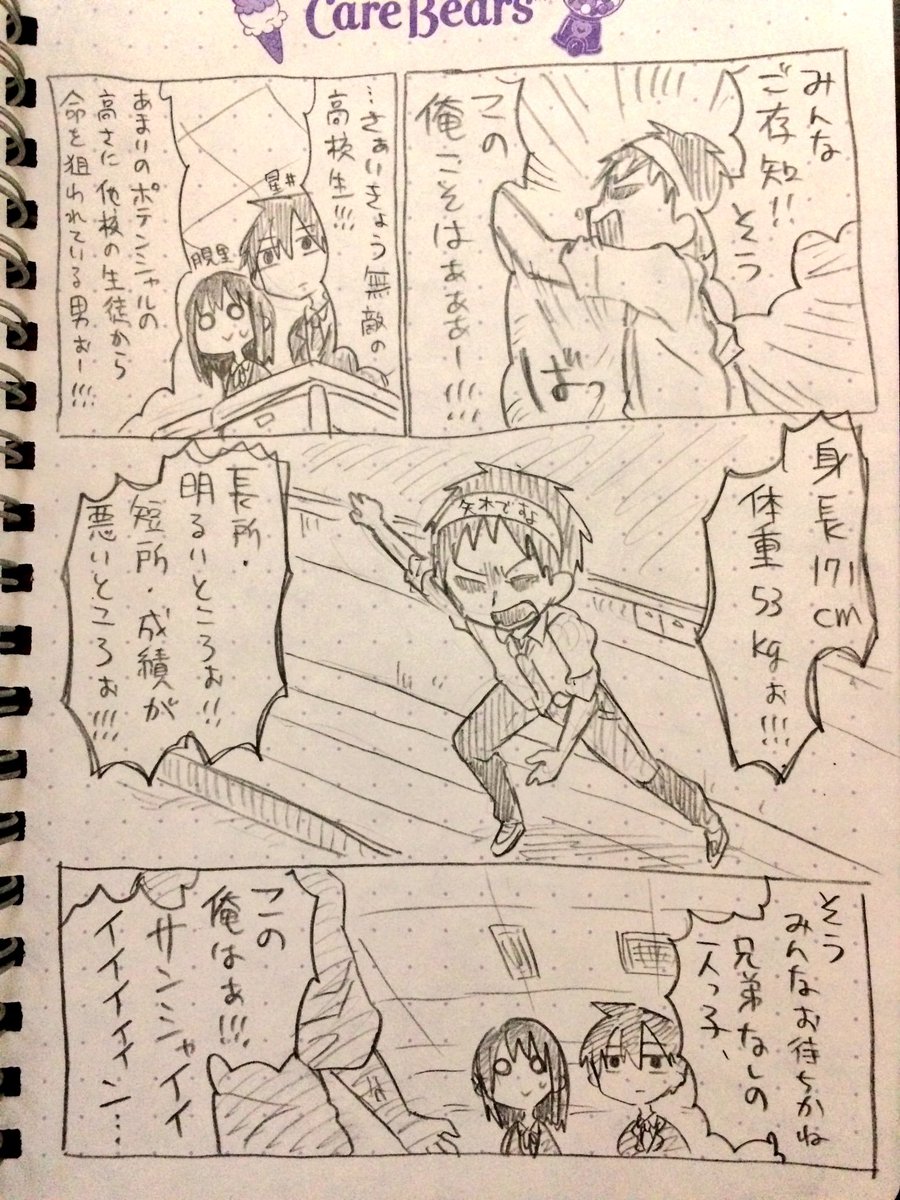 Care Bears
みんな
ご存知!!
そう
この
俺こそはぁぁぁー!!!!
ばっ
…さぁいきょう無敵の
高校生!!!
星井
腹黒
あまいのポテンシャルの
高さに他校の生徒から
命を狙われている男ぉー!!!
身長171cm
体重53kgぉ!!!
矢木ですよ
長所・
明るいところぉ!!
短所・成績が
悪いところぉ!!!
そう
みんなお待ちかね
兄弟なしの
一人っ子、
この
俺はぁ!!!
サンシャイイ
イイイイィン…